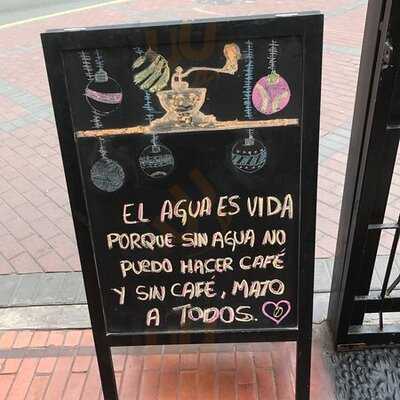 EL AGUA ES VIDA
PORQUE SIN AGUA NO
PUEDO HACER CAFÉ
Y SIN CAFÉ, MATO
A TODOS.